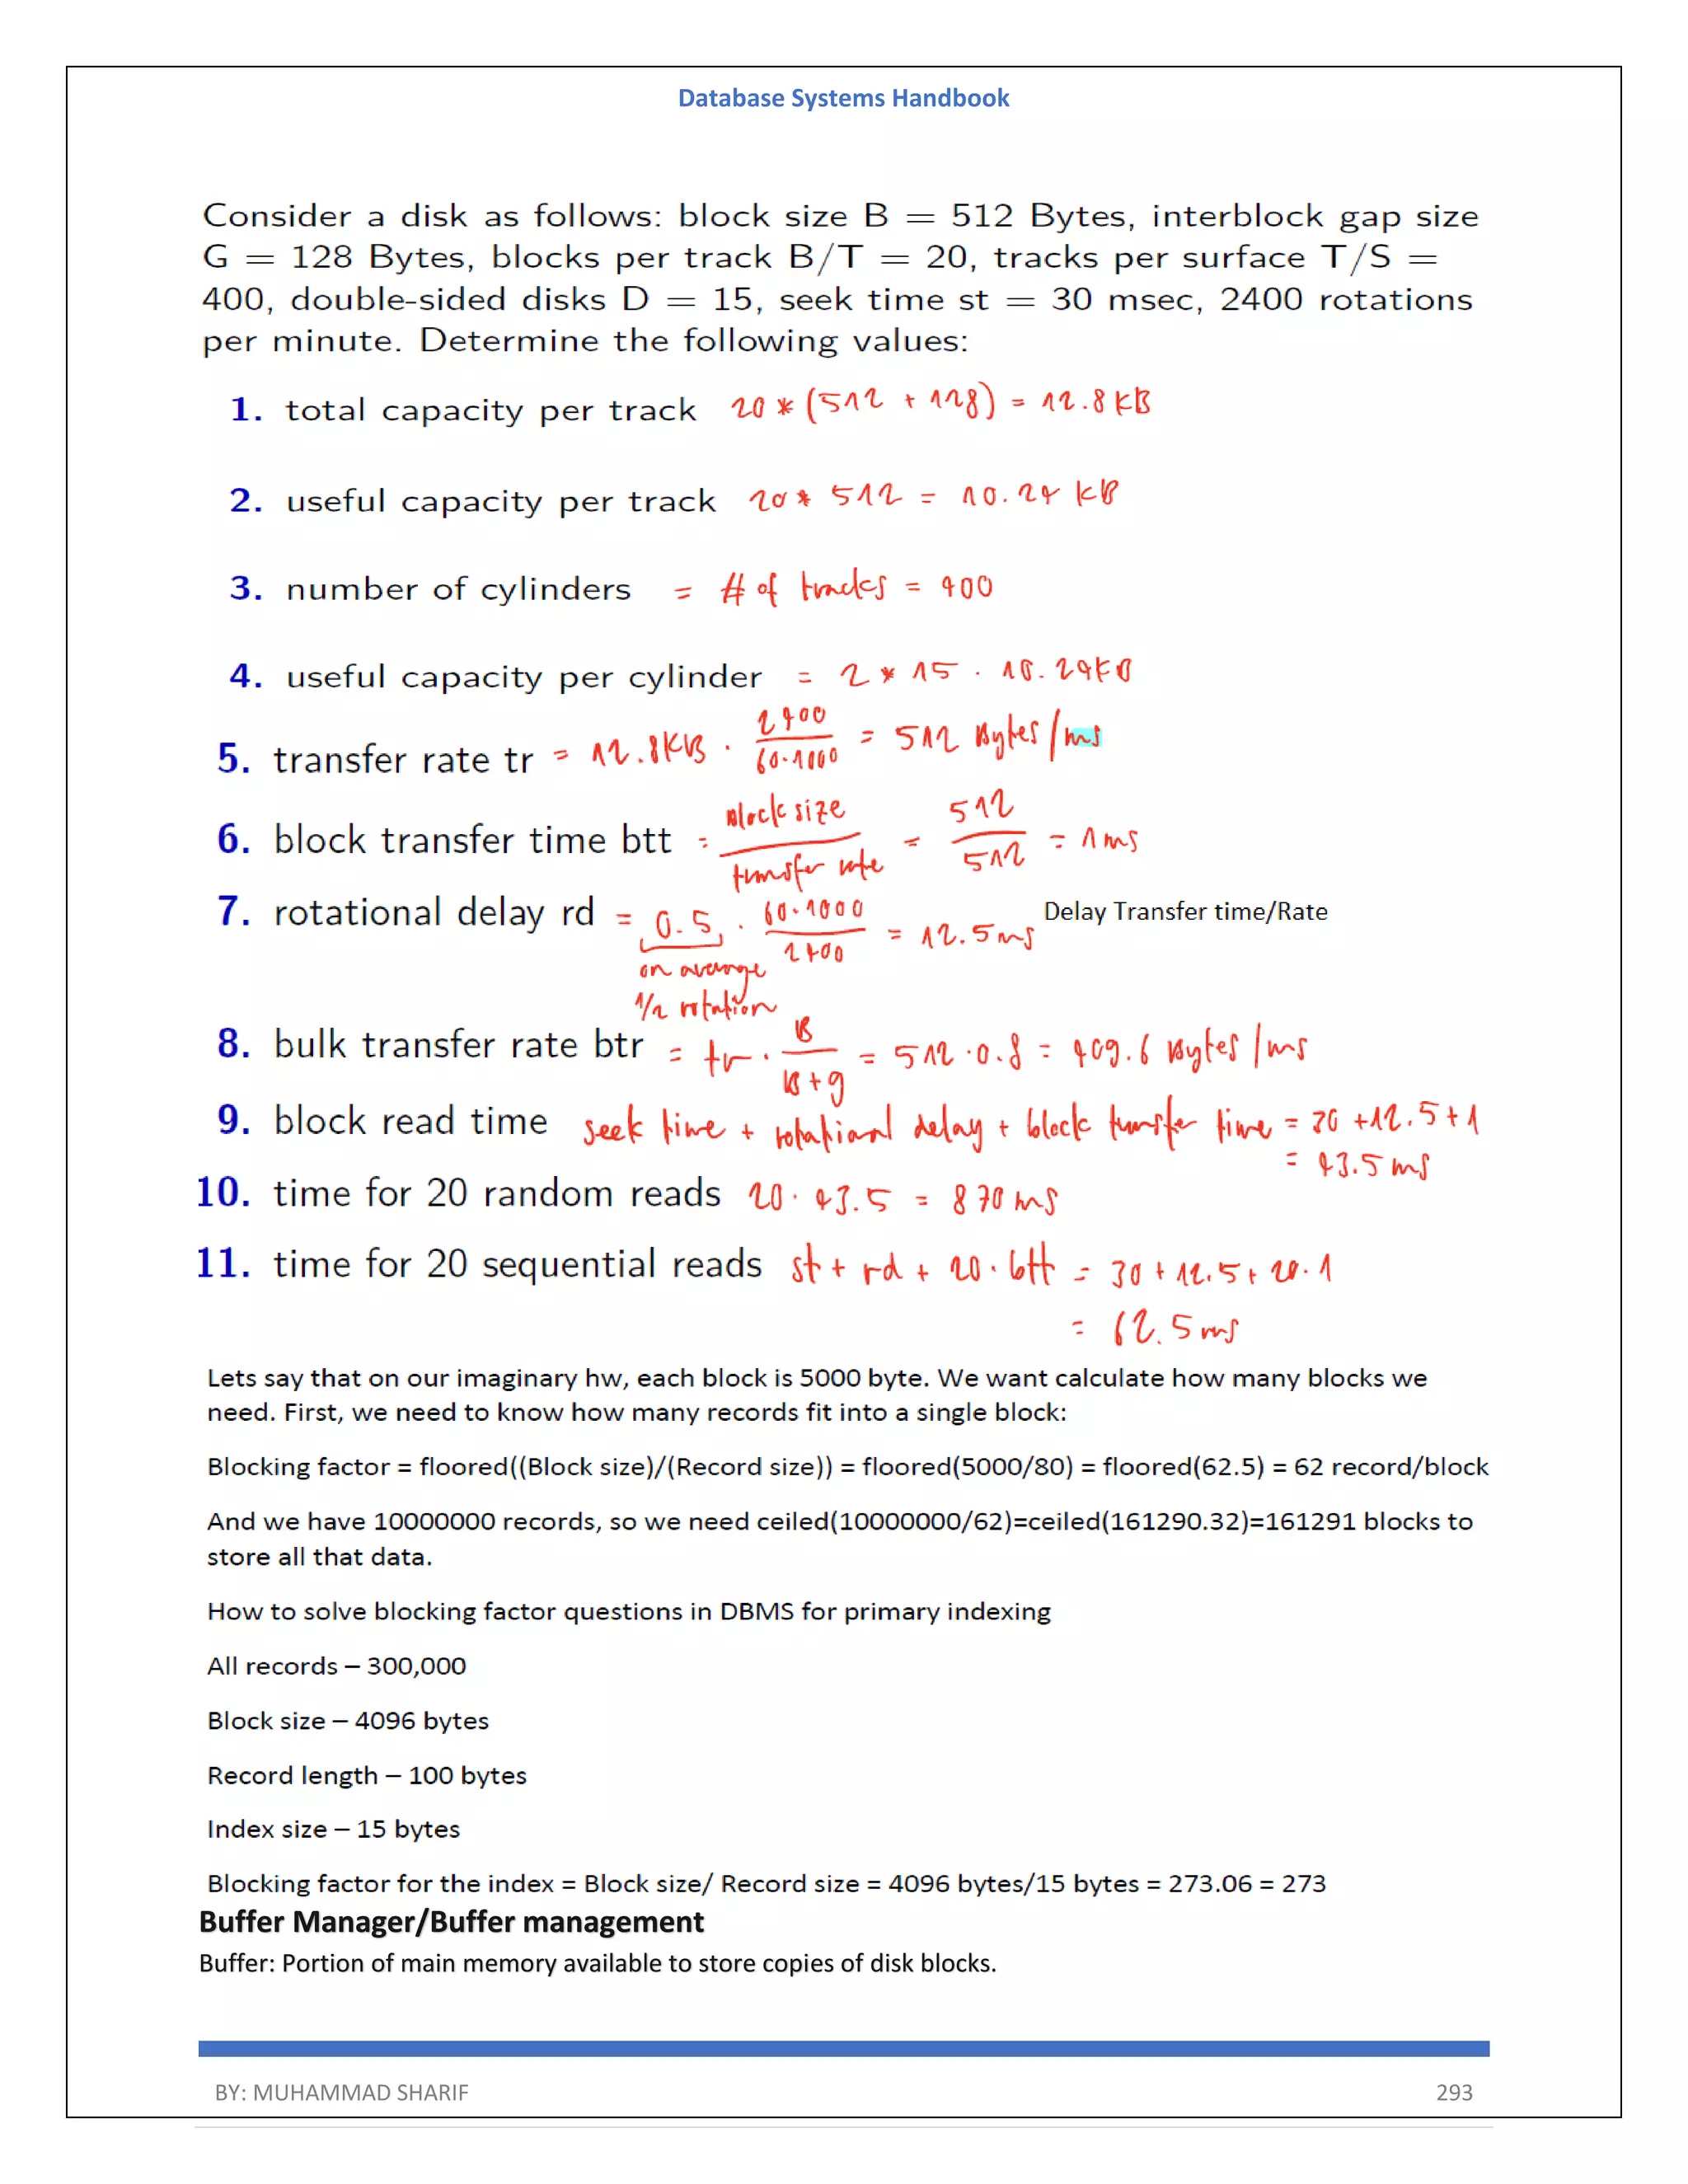 Database Systems Handbook
Consider a disk as follows: block size B = 512 Bytes, interblock gap size
G = 128 Bytes, blocks per track B/T = 20, tracks per surface T/S =
400, double-sided disks D = 15, seek time st = 30 msec, 2400 rotations
per minute. Determine the following values:
1. total capacity per track 20 * (512 + 128) = 12.8 KB
2. useful capacity per track 20 * 512 = 10.24 KB
3. number of cylinders = # of tracks = 400
4. useful capacity per cylinder = 2 * 15 · 10.24KB
5. transfer rate tr = 12.8KB · 2400 / 60·1000 = 512 Bytes/ms
6. block transfer time btt = Block size / transfer rate = 512 / 512 = 1 ms
7. rotational delay rd = 0.5 · 60·1000 / 2400 = 12.5 ms Delay Transfer time/Rate
on average
1/2 rotation
8. bulk transfer rate btr = tr · B / B+g = 512 · 0.8 = 409.6 Bytes/ms
9. block read time seek time + rotational delay + block transfer time = 30 + 12.5 + 1
= 43.5 ms
10. time for 20 random reads 20 · 43.5 = 870 ms
11. time for 20 sequential reads st + rd + 20 · btt = 30 + 12.5 + 20 · 1
= 62.5 ms
Lets say that on our imaginary hw, each block is 5000 byte. We want calculate how many blocks we
need. First, we need to know how many records fit into a single block:
Blocking factor = floored((Block size)/(Record size)) = floored(5000/80) = floored(62.5) = 62 record/block
And we have 10000000 records, so we need ceiled(10000000/62)=ceiled(161290.32)=161291 blocks to
store all that data.
How to solve blocking factor questions in DBMS for primary indexing
All records – 300,000
Block size – 4096 bytes
Record length – 100 bytes
Index size – 15 bytes
Blocking factor for the index = Block size/ Record size = 4096 bytes/15 bytes = 273.06 = 273
Buffer Manager/Buffer management
Buffer: Portion of main memory available to store copies of disk blocks.
BY: MUHAMMAD SHARIF 293